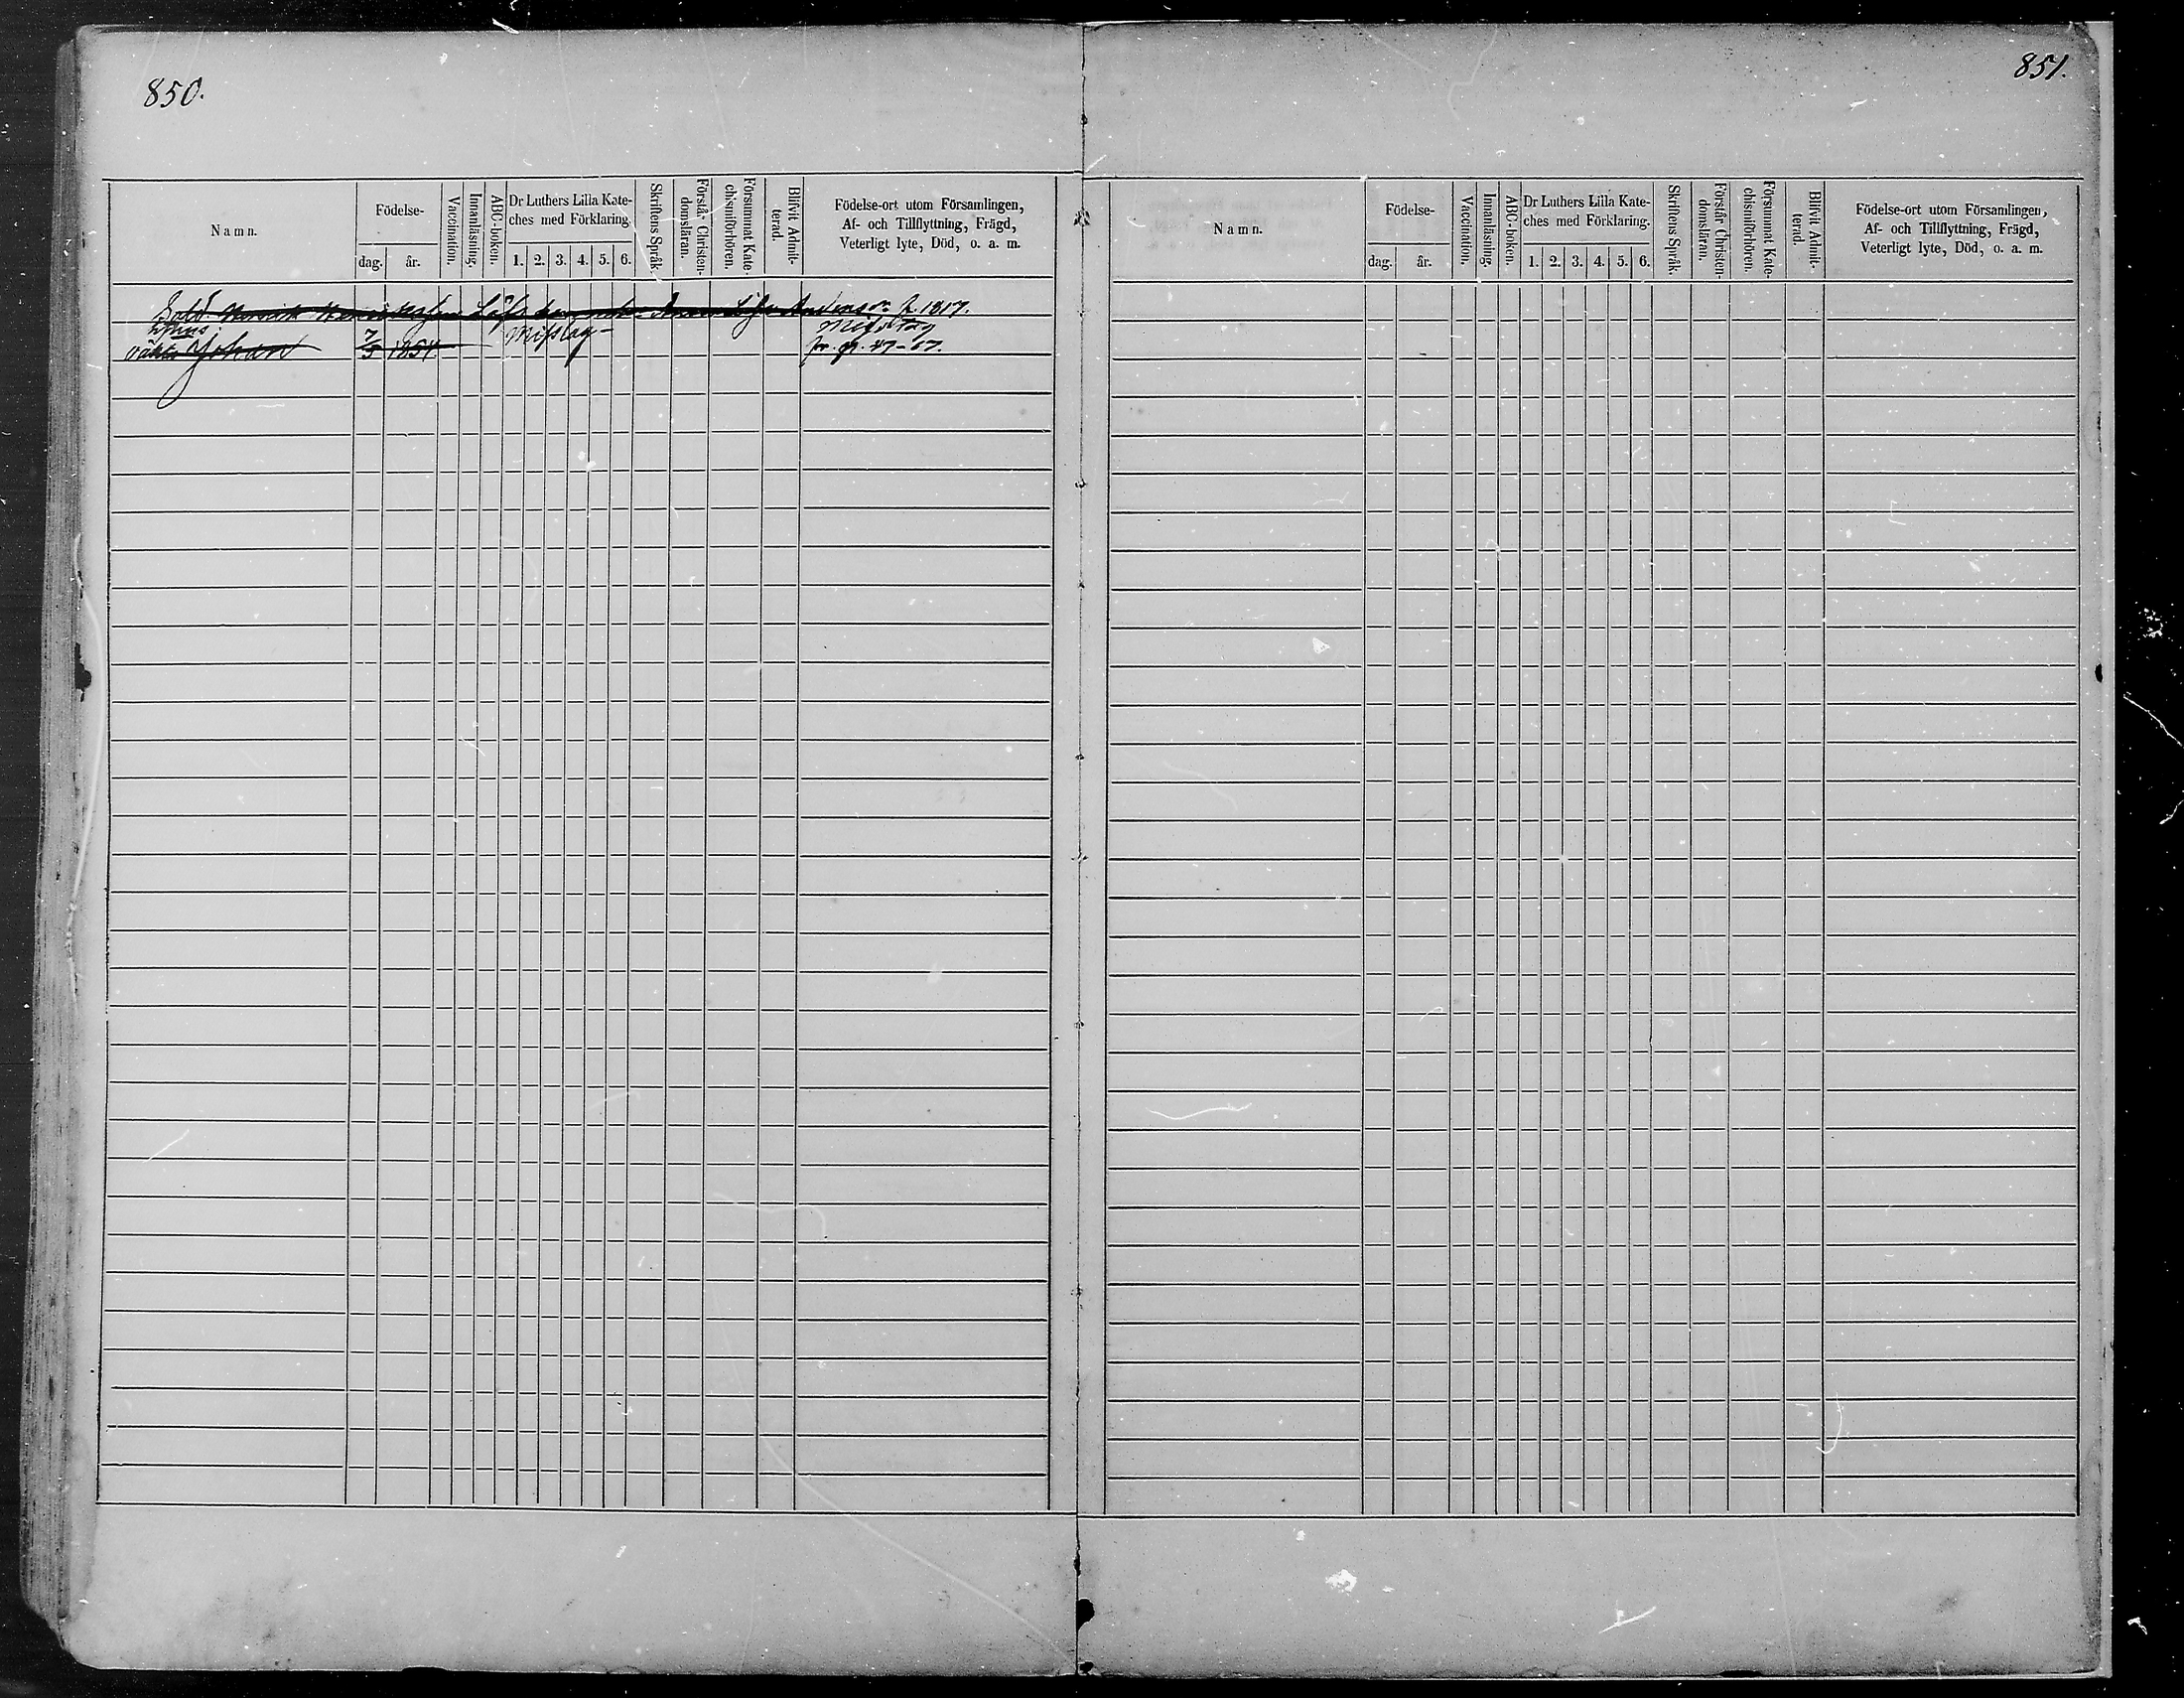 850.
Namn.
Födelse-
dag.
år.
Vaccination.
Innanläsning.
ABC-boken.
Dr Luthers Lilla Kate-
ches med Förklaring.
1. 2. 3. 4. 5. 6.
Skriftens Språk.
Förstår Christen-
domsläran.
Försummat Kate-
chismiförhören.
Blifvit Admit-
terad.
Födelse-ort utom Församlingen,
Af- och Tillflyttning, Frägd,
Veterligt lyte, Död, o. a. m.
Sold. Anna Andersdr f. 1817.
Johan 7/5 1854 Misslag
851.
Namn.
Födelse-
dag.
år.
Vaccination.
Innanläsning.
ABC-boken.
Dr Luthers Lilla Kate-
ches med Förklaring.
1. 2. 3. 4. 5. 6.
Skriftens Språk.
Förstår Christen-
domsläran.
Försummat Kate-
chismiförhören.
Blifvit Admit-
terad.
Födelse-ort utom Församlingen,
Af- och Tillflyttning, Frägd,
Veterligt lyte, Död, o. a. m.